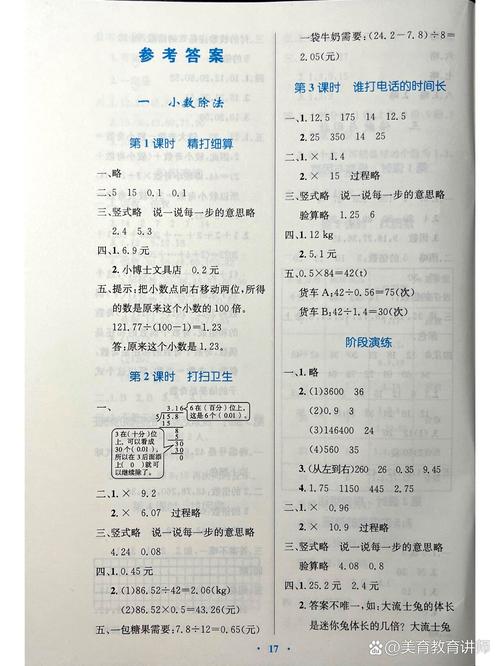 参考答案
一 小数除法
第1课时 精打细算
一、略
二、5 15 0.1 0.1
三、竖式略 说一说每一步的意思略
2.4 5.3
四、1.6.9元
2.小博士文具店 0.2元
五、提示:把小数点向右移动两位,所得
的数是原来这个小数的100倍。
121.77÷(100-1)=1.23
答:原来这个小数是1.23。
第2课时 打扫卫生
一、
3.16
5)15.8
15
8
5
30
30
0
6在(百分)位上,
这是6个(0.01)。
3在(十分)位
上,可以看成
30个(0.01)。
所以在3后面添
上(0)就可
以继续除了。
二、1.× 9.2
2.× 6.07 过程略
三、竖式略 说一说每一步的意思略
4.24 0.08
四、1.0.45元
2.(1)86.52÷42=2.06(kg)
(2)86.52×0.5=43.26(元)
五、一包糖果需要:7.8÷12=0.65(元)
一袋牛奶需要:(24.2-7.8)÷8=
2.05(元)
第3课时 谁打电话的时间长
一、1.12.5 175 14 12.5
2.25 350 14 25
二、1.× 1.4
2.× 15 过程略
三、竖式略 说一说每一步的意思略
验算略 1.25 6
四、1.12 kg
2.5.1元
五、0.5×84=42(t)
货车A:42÷0.56=75(次)
货车B:42÷1.4=30(次)
阶段演练
一、1.略
2.(1)3600 36
(2)0.9 3
(3)146400 24
(4)560 35
3.(从左到右)260 26 0.35 9.45
4.1.75 1150 445 2.75
二、1.× 0.96
2.× 10.9 过程略
三、竖式略 说一说每一步的意思略
验算略 4.08 0.8
四、1.25.2元 2.4元
2.答案不唯一,如:大流士兔的体长
是迷你兔体长的几倍? 大流士兔
17
头条@美育教育讲师